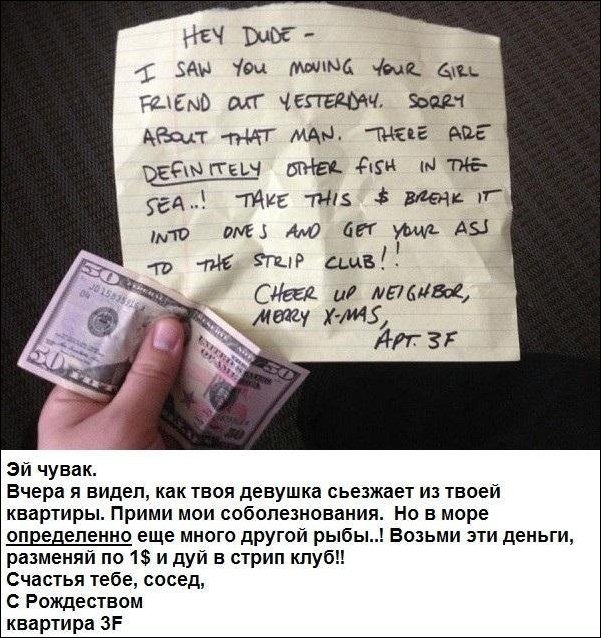 HEY DUDE -
I SAW YOU MOVING YOUR GIRL
FRIEND OUT YESTERDAY. SORRY
ABOUT THAT MAN. THERE ARE
DEFINITELY OTHER FISH IN THE
SEA..! TAKE THIS $ BREAK IT
INTO ONES AND GET YOUR ASS
TO THE STRIP CLUB!!
CHEER UP NEIGHBOR,
MERRY X-MAS,
APT. 3F
50
50
50
Эй чувак.
Вчера я видел, как твоя девушка сьезжает из твоей
квартиры. Прими мои соболезнования. Но в море
определенно еще много другой рыбы..! Возьми эти деньги,
разменяй по 1$ и дуй в стрип клуб!!
Счастья тебе, сосед,
С Рождеством
квартира 3F